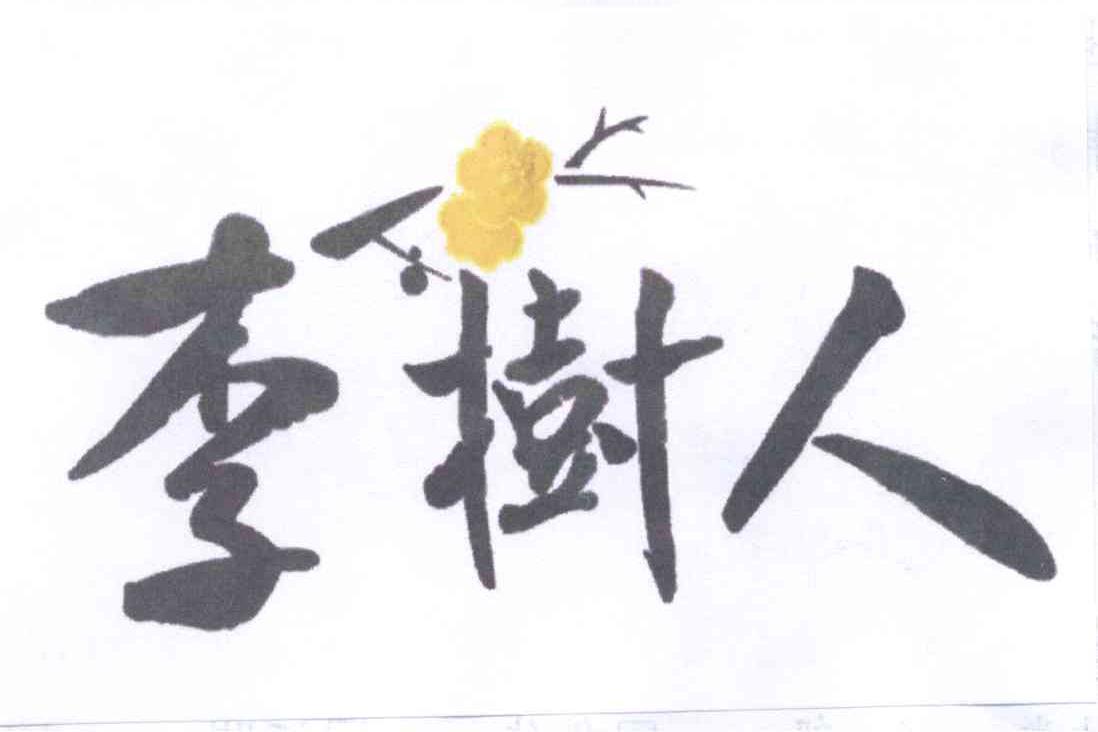 李樹人